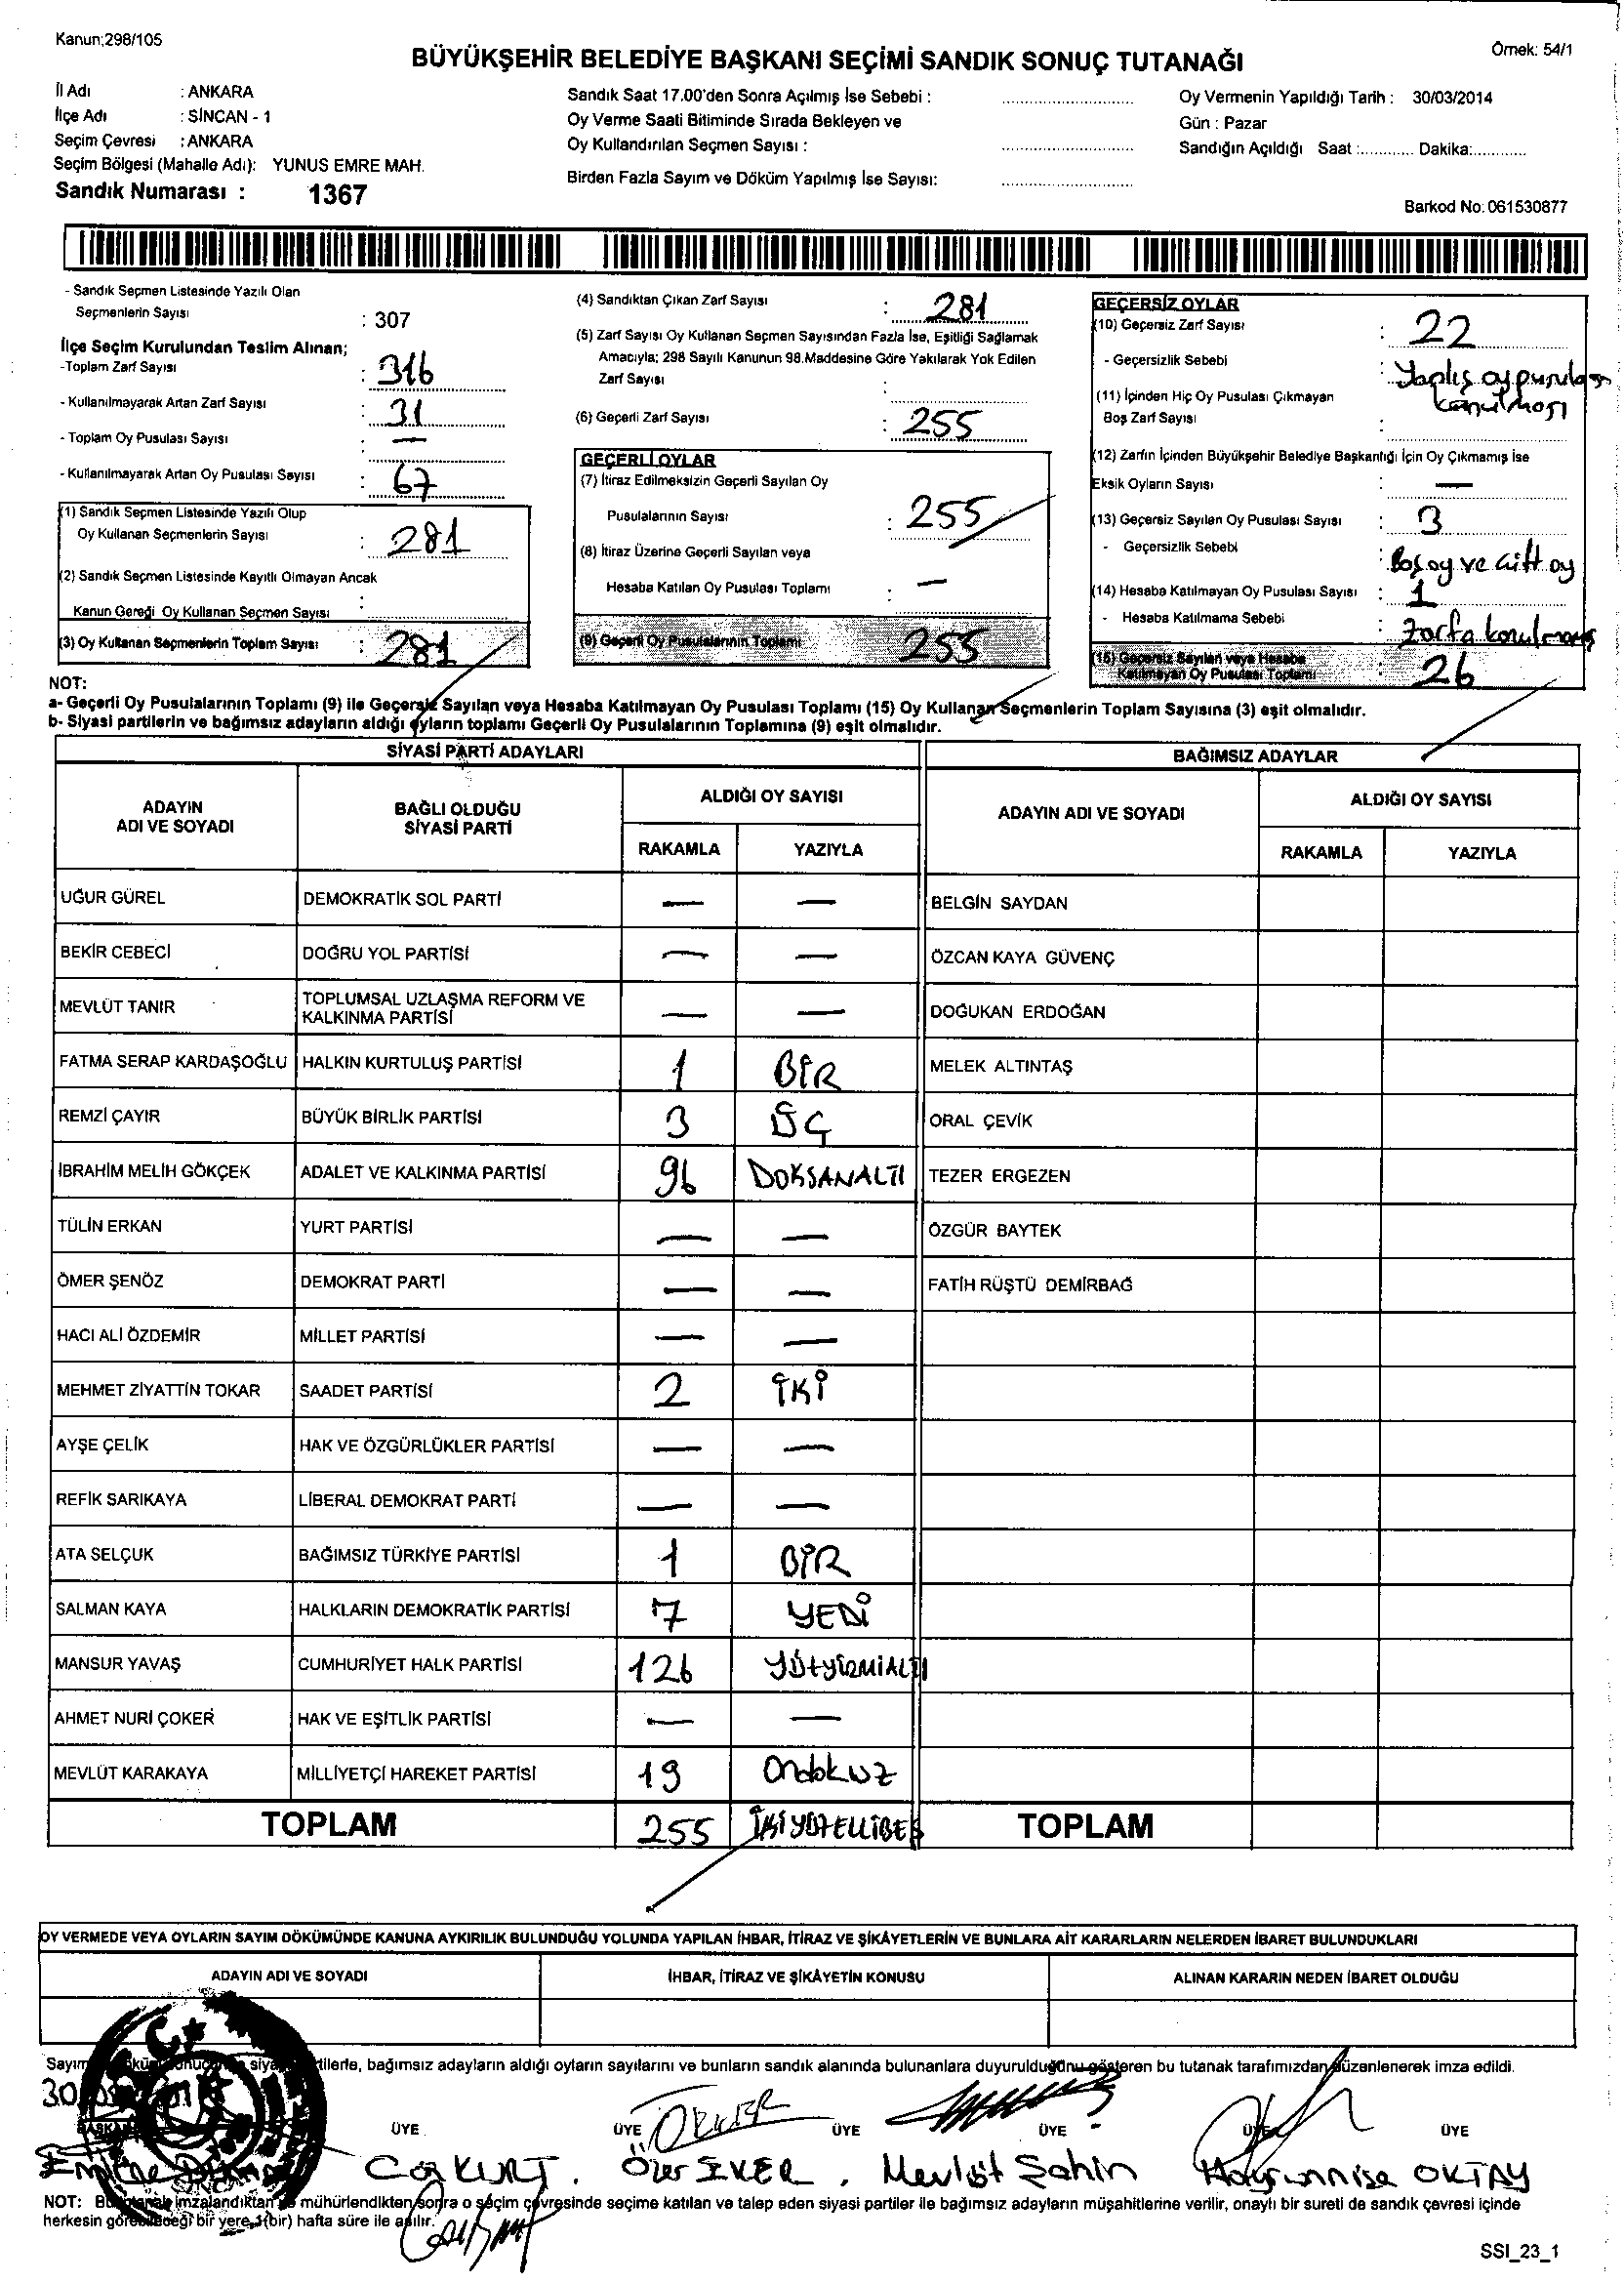 Kanun;298/105
Örnek: 54/1
BÜYÜKŞEHİR BELEDİYE BAŞKANI SEÇİMİ SANDIK SONUÇ TUTANAĞI
İl Adı : ANKARA
İlçe Adı : SİNCAN - 1
Seçim Çevresi : ANKARA
Seçim Bölgesi (Mahalle Adı): YUNUS EMRE MAH.
Sandık Numarası : 1367
Sandık Saat 17.00'den Sonra Açılmış İse Sebebi :
Oy Verme Saati Bitiminde Sırada Bekleyen ve
Oy Kullandırılan Seçmen Sayısı :
Birden Fazla Sayım ve Döküm Yapılmış İse Sayısı:
Oy Vermenin Yapıldığı Tarih : 30/03/2014
Gün : Pazar
Sandığın Açıldığı Saat :............ Dakika:............
Barkod No: 061530877
- Sandık Seçmen Listesinde Yazılı Olan
Seçmenlerin Sayısı : 307
İlçe Seçim Kurulundan Teslim Alınan;
-Toplam Zarf Sayısı : 316
- Kullanılmayarak Artan Zarf Sayısı : 31
- Toplam Oy Pusulası Sayısı : —
- Kullanılmayarak Artan Oy Pusulası Sayısı : 67
(1) Sandık Seçmen Listesinde Yazılı Olup
Oy Kullanan Seçmenlerin Sayısı : 281
(2) Sandık Seçmen Listesinde Kayıtlı Olmayan Ancak
Kanun Gereği Oy Kullanan Seçmen Sayısı :
(3) Oy Kullanan Seçmenlerin Toplam Sayısı : 281
(4) Sandıktan Çıkan Zarf Sayısı : 281
(5) Zarf Sayısı Oy Kullanan Seçmen Sayısından Fazla İse, Eşitliği Sağlamak
Amacıyla; 298 Sayılı Kanunun 98.Maddesine Göre Yakılarak Yok Edilen
Zarf Sayısı :
(6) Geçerli Zarf Sayısı : 255
GEÇERLİ OYLAR
(7) İtiraz Edilmeksizin Geçerli Sayılan Oy
Pusulalarının Sayısı : 255
(8) İtiraz Üzerine Geçerli Sayılan veya
Hesaba Katılan Oy Pusulası Toplamı : —
(9) Geçerli Oy Pusulalarının Toplamı 255
GEÇERSİZ OYLAR
(10) Geçersiz Zarf Sayısı : 22
- Geçersizlik Sebebi : Yanlış oy pusulası
konulması
(11) İçinden Hiç Oy Pusulası Çıkmayan
Boş Zarf Sayısı :
(12) Zarfın İçinden Büyükşehir Belediye Başkanlığı İçin Oy Çıkmamış İse
Eksik Oyların Sayısı : —
(13) Geçersiz Sayılan Oy Pusulası Sayısı : 3
- Geçersizlik Sebebi : Boş oy ve çift oy
(14) Hesaba Katılmayan Oy Pusulası Sayısı : 1
- Hesaba Katılmama Sebebi : zarfa konulmamış
(15) Geçersiz Sayılan veya Hesaba
Katılmayan Oy Pusulası Toplamı : 26
NOT:
a- Geçerli Oy Pusulalarının Toplamı (9) ile Geçersiz Sayılan veya Hesaba Katılmayan Oy Pusulası Toplamı (15) Oy Kullanan Seçmenlerin Toplam Sayısına (3) eşit olmalıdır.
b- Siyasi partilerin ve bağımsız adayların aldığı oyların toplamı Geçerli Oy Pusulalarının Toplamına (9) eşit olmalıdır.
SİYASİ PARTİ ADAYLARI BAĞIMSIZ ADAYLAR
ADAYIN ADI VE SOYADI BAĞLI OLDUĞU SİYASİ PARTİ ALDIĞI OY SAYISI ADAYIN ADI VE SOYADI ALDIĞI OY SAYISI
RAKAMLA YAZIYLA RAKAMLA YAZIYLA
UĞUR GÜREL DEMOKRATİK SOL PARTİ — — BELGİN SAYDAN
BEKİR CEBECİ DOĞRU YOL PARTİSİ — — ÖZCAN KAYA GÜVENÇ
MEVLÜT TANIR TOPLUMSAL UZLAŞMA REFORM VE KALKINMA PARTİSİ — — DOĞUKAN ERDOĞAN
FATMA SERAP KARDAŞOĞLU HALKIN KURTULUŞ PARTİSİ 1 BİR MELEK ALTINTAŞ
REMZİ ÇAYIR BÜYÜK BİRLİK PARTİSİ 3 ÜÇ ORAL ÇEVİK
İBRAHİM MELİH GÖKÇEK ADALET VE KALKINMA PARTİSİ 96 DOKSANALTI TEZER ERGEZEN
TÜLİN ERKAN YURT PARTİSİ — — ÖZGÜR BAYTEK
ÖMER ŞENÖZ DEMOKRAT PARTİ — — FATİH RÜŞTÜ DEMİRBAĞ
HACI ALİ ÖZDEMİR MİLLET PARTİSİ — —
MEHMET ZİYATTİN TOKAR SAADET PARTİSİ 2 İKİ
AYŞE ÇELİK HAK VE ÖZGÜRLÜKLER PARTİSİ — —
REFİK SARIKAYA LİBERAL DEMOKRAT PARTİ — —
ATA SELÇUK BAĞIMSIZ TÜRKİYE PARTİSİ 1 BİR
SALMAN KAYA HALKLARIN DEMOKRATİK PARTİSİ 7 YEDİ
MANSUR YAVAŞ CUMHURİYET HALK PARTİSİ 126 YÜZYİRMİALTI
AHMET NURİ ÇOKER HAK VE EŞİTLİK PARTİSİ — —
MEVLÜT KARAKAYA MİLLİYETÇİ HAREKET PARTİSİ 19 Ondokuz
TOPLAM 255 İKİYÜZELLİBEŞ TOPLAM
OY VERMEDE VEYA OYLARIN SAYIM DÖKÜMÜNDE KANUNA AYKIRILIK BULUNDUĞU YOLUNDA YAPILAN İHBAR, İTİRAZ VE ŞİKÂYETLERİN VE BUNLARA AİT KARARLARIN NELERDEN İBARET BULUNDUKLARI
ADAYIN ADI VE SOYADI İHBAR, İTİRAZ VE ŞİKÂYETİN KONUSU ALINAN KARARIN NEDEN İBARET OLDUĞU
bağımsız adayların aldığı oyların sayılarını ve bunların sandık alanında bulunanlara duyurulduğunu gösteren bu tutanak tarafımızdan düzenlenerek imza edildi.
BAŞKAN ÜYE ÜYE ÜYE ÜYE ÜYE ÜYE
Emine Özer İKER Mevlüt Şahin Hayrunnisa OKTAY
NOT: Bu tutanak imzalandıktan ve mühürlendikten sonra o seçim çevresinde seçime katılan ve talep eden siyasi partiler ile bağımsız adayların müşahitlerine verilir, onaylı bir sureti de sandık çevresi içinde
herkesin görebileceği bir yere 1(bir) hafta süre ile asılır.
SSI_23_1